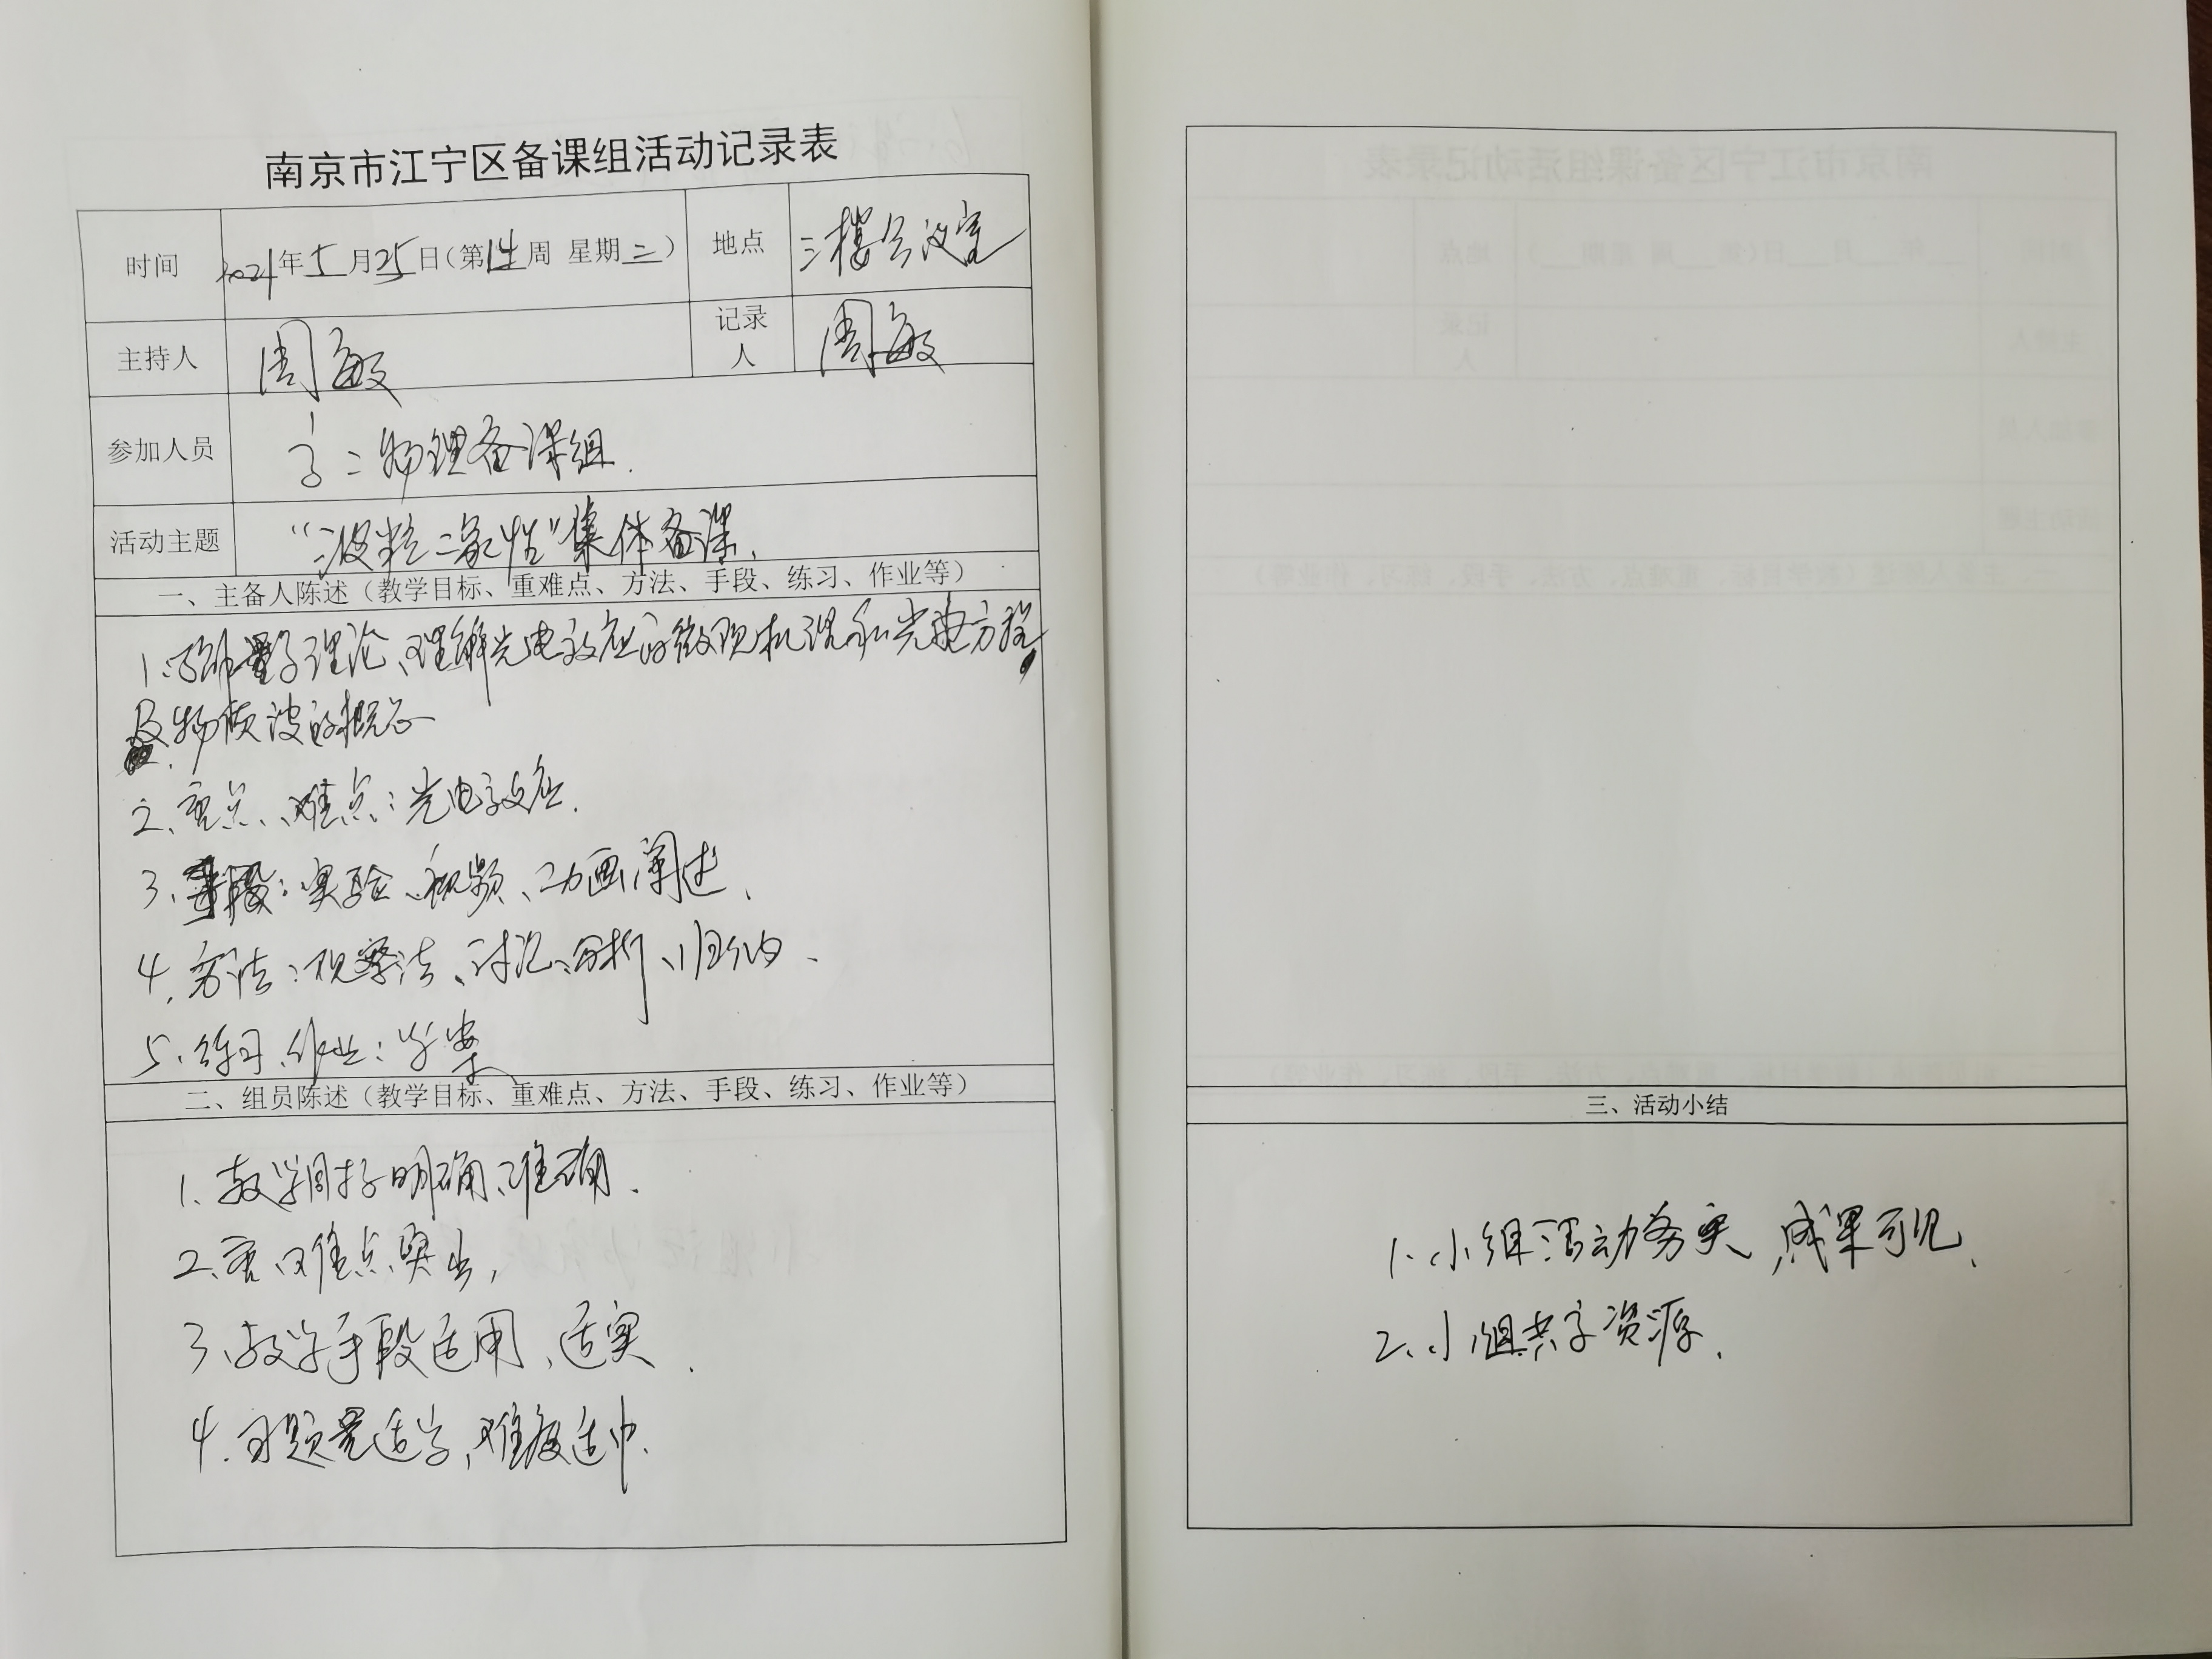 南京市江宁区备课组活动记录表
时间 2021年5月25日(第14周 星期二) 地点 三楼会议室
主持人 周敏 记录人 周敏
参加人员 高二物理备课组.
活动主题 “波粒二象性”集体备课.
一、主备人陈述（教学目标、重难点、方法、手段、练习、作业等）
1.了解量子理论、理解光电效应的微观机理和光电方程,
及物质波的概念
2、重点、难点：光电效应.
3、手段：实验、视频、动画阐述.
4、方法：观察法、讨论、分析、归纳.
5、练习、作业：学案
二、组员陈述（教学目标、重难点、方法、手段、练习、作业等）
1、教学目标明确、准确.
2、重、难点突出,
3、教学手段适用、适实.
4.习题量适当,难度适中.
三、活动小结
1、小组活动务实,成果可见.
2、小组共享资源.